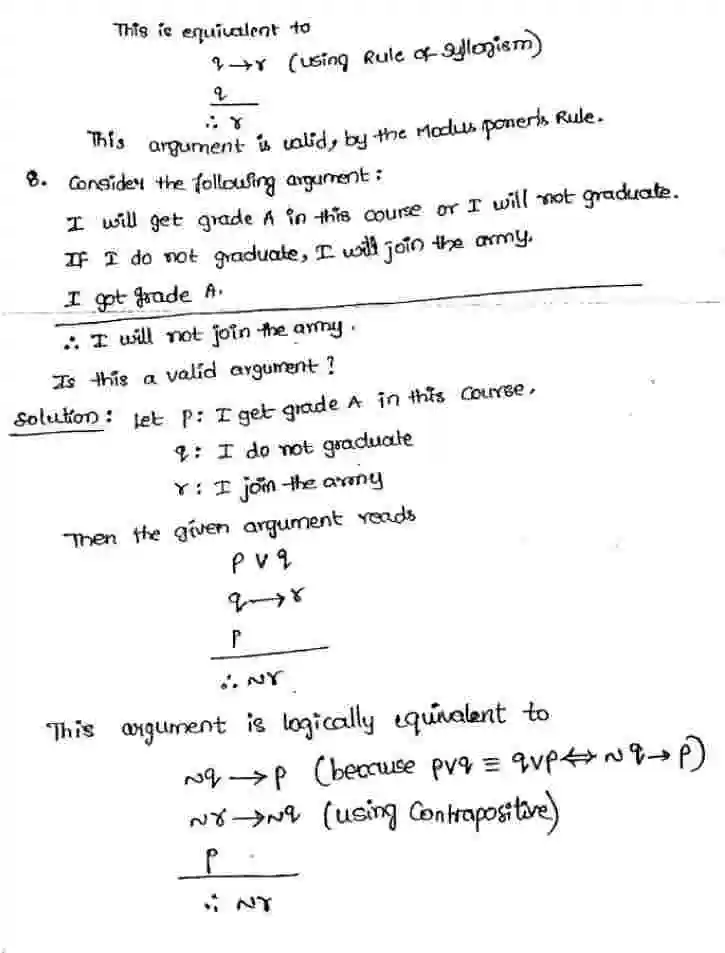 This is equivalent to
q → r (using Rule of Syllogism)
q
∴ r
This argument is valid, by the Modus ponens Rule.
8. Consider the following argument:
I will get grade A in this course or I will not graduate.
If I do not graduate, I will join the army.
I got grade A.
∴ I will not join the army.
Is this a valid argument?
Solution: Let p: I get grade A in this course.
q: I do not graduate
r: I join the army
Then the given argument reads
p ∨ q
q → r
p
∴ ~r
This argument is logically equivalent to
~q → p (because p∨q ≡ q∨p ⇔ ~q → p)
~r → ~q (using Contrapositive)
p
∴ ~r